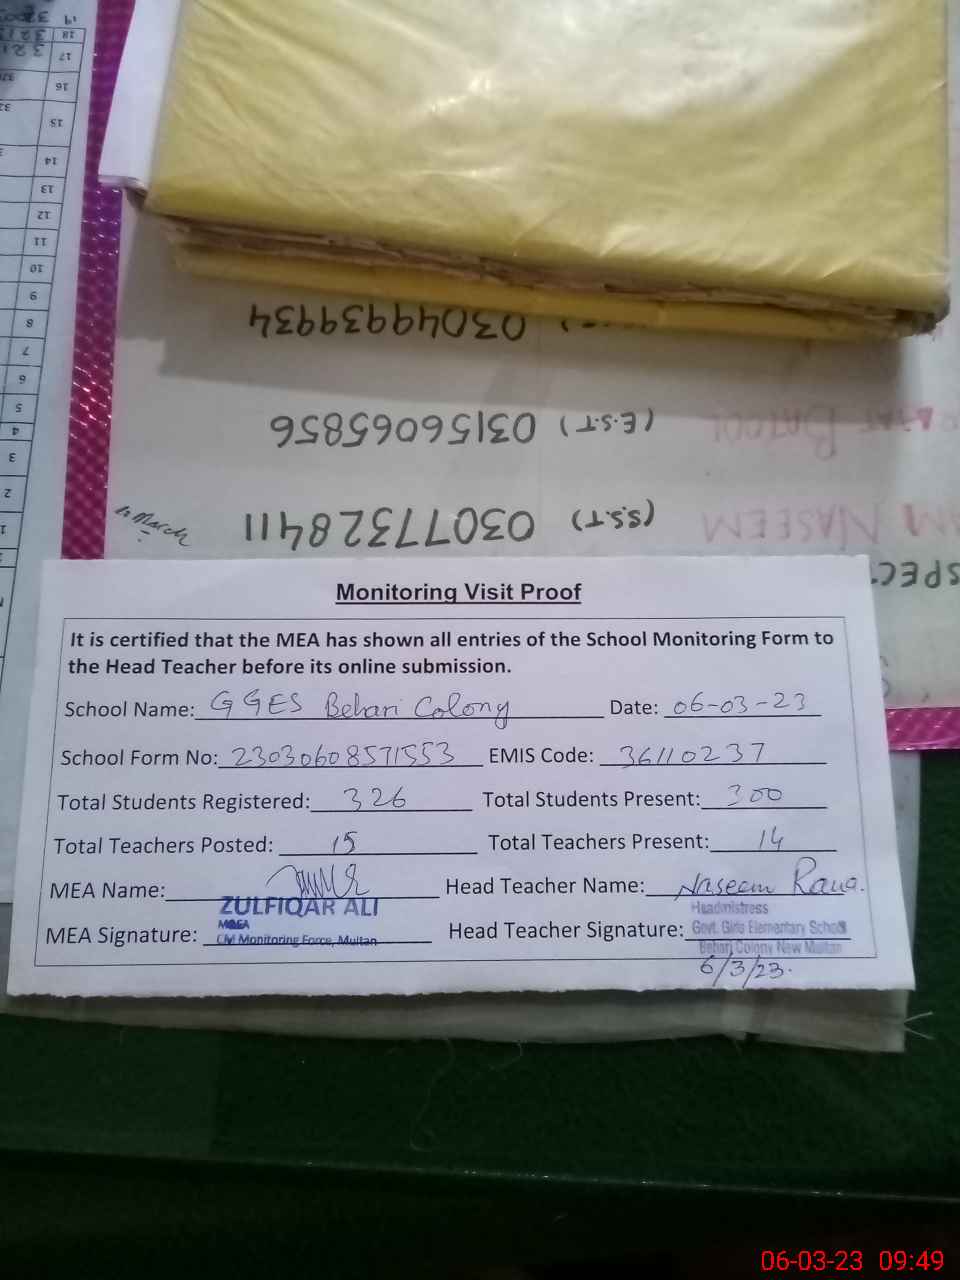 19
18
17
16
15
14
13
12
11
10
9
8
7
6
5
4
3
2
1
03049939934
(E.S.T) 03156065856
BATOOL
(S.S.T) 03077328411
NASEEM
March
Monitoring Visit Proof
It is certified that the MEA has shown all entries of the School Monitoring Form to
the Head Teacher before its online submission.
School Name: GGES Behari Colony Date: 06-03-23
School Form No: 23030608571553 EMIS Code: 36110237
Total Students Registered: 326 Total Students Present: 300
Total Teachers Posted: 15 Total Teachers Present: 14
MEA Name: Head Teacher Name: Naseem Rana.
ZULFIQAR ALI
MEA
Headmistress
MEA Signature: CM Monitoring Force, Multan Head Teacher Signature: Govt. Girls Elementary School
Behari Colony New Multan
6/3/23.
06-03-23 09:49